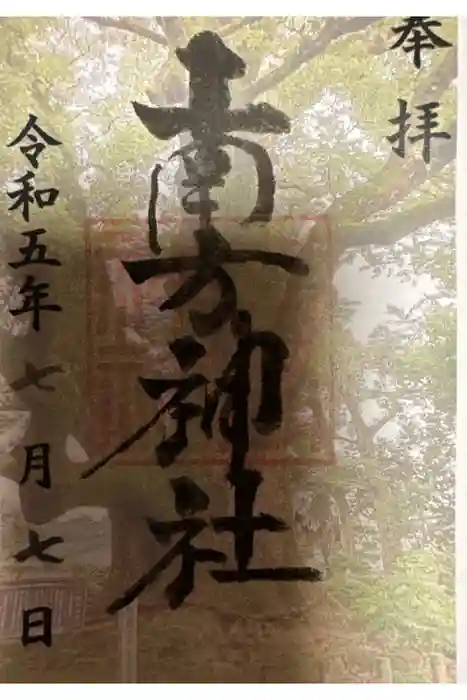 奉拝
南方神社
令和五年七月七日